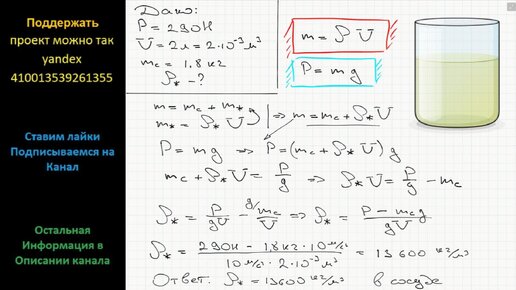 Поддержать
проект можно так
yandex
410013539261355
Ставим лайки
Подписываемся на
Канал
Остальная
Информация в
Описании канала
Дано:
P = 290Н
V = 2л = 2·10⁻³ м³
m_c = 1,8 кг
ρ_ж - ?
m = ρV
P = mg
m = m_c + m_ж
m_ж = ρ_ж V ⇒ m = m_c + ρ_ж V
P = mg ⇒ P = (m_c + ρ_ж V) g
m_c + ρ_ж V = P/g ⇒ ρ_ж V = P/g - m_c
ρ_ж = P/gV - g/ m_c/V ⇒ ρ_ж = (P - m_c g)/gV
ρ_ж = (290Н - 1,8 кг · 10 м/с²)/(10 м/с² · 2·10⁻³ м³) = 13600 кг/м³
Ответ: ρ_ж = 13600 кг/м³ в сосуде